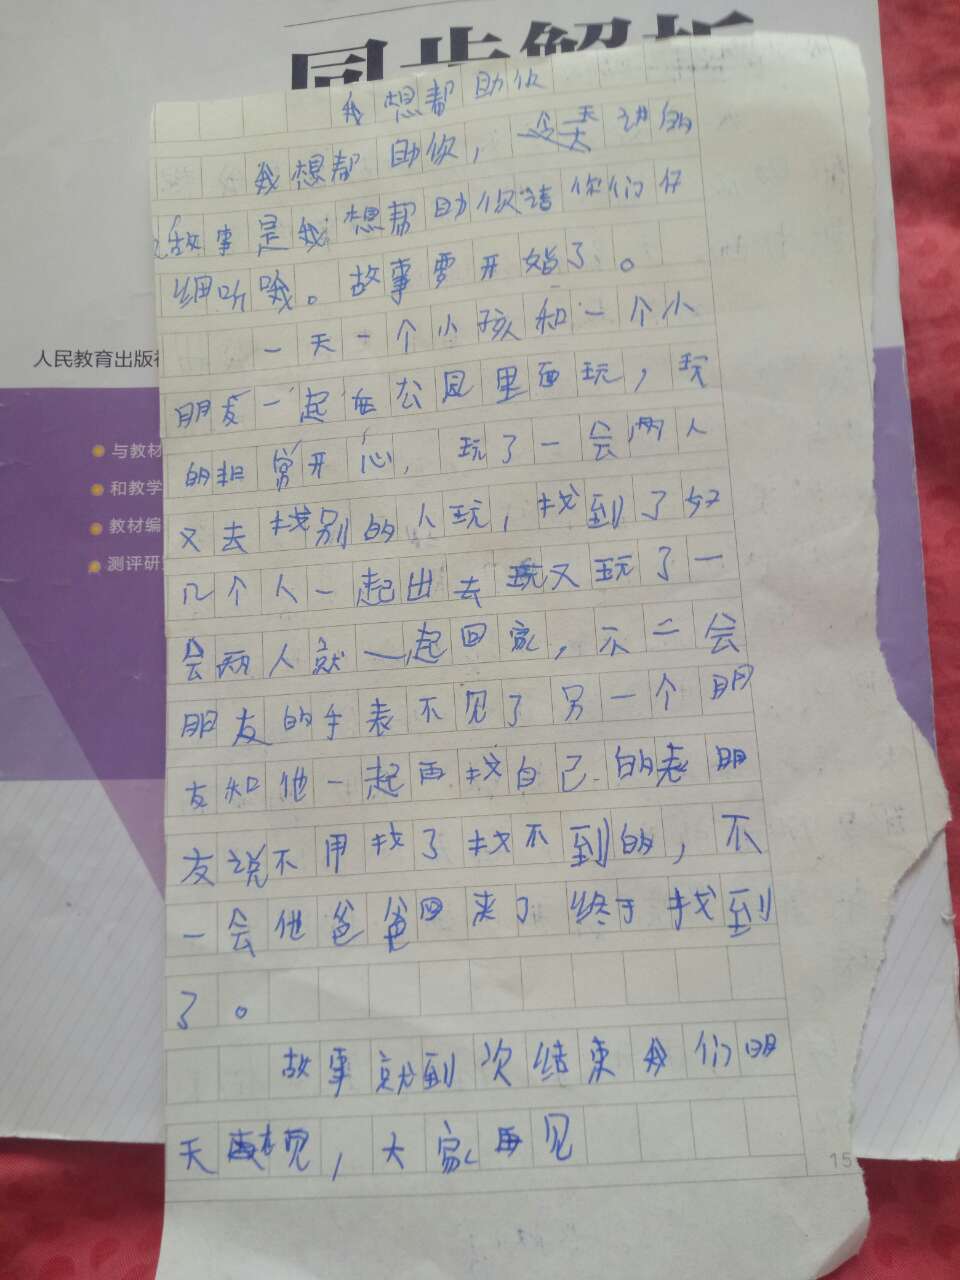 同步解析
我想帮助你
我想帮助你，今天讲的
故事是我想帮助你请你们仔
细听哦。故事要开始了。
一天一个小孩和一个小
人民教育出版社
朋友一起在公园里面玩，玩
与教材
的非常开心，玩了一会两人
和教学
又去找别的人玩，找到了好
教材编
几个人一起出去玩又玩了一
测评研
会两人就一起回家，不二会
朋友的手表不见了另一个朋
友和他一起再找自己的表朋
友说不用找了找不到的，不
一会他爸爸回来了终于找到
了。
故事就到次结束我们明
天再见，大家再见
15